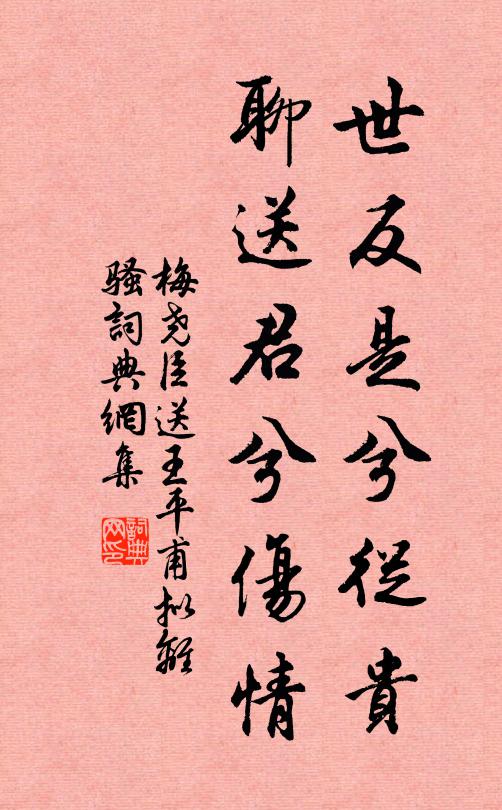 世反是兮從貴
聊送君兮傷情
梅尧臣送王平甫拟離
騷詞典網集
詞典
网印